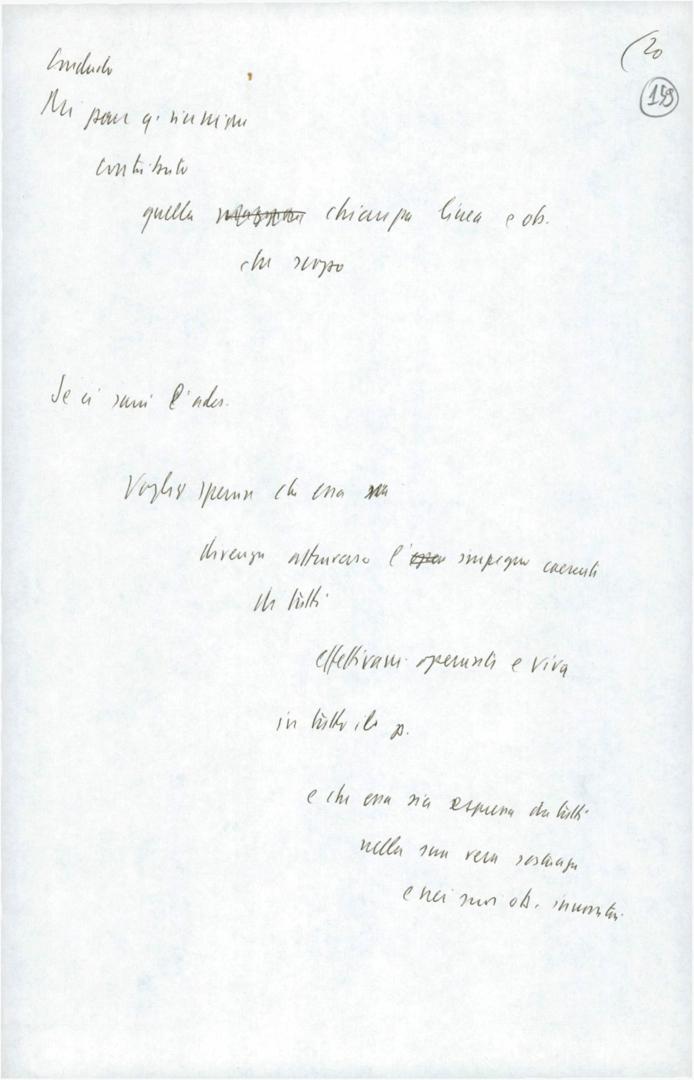 (20
149
Concludo
Mi pare q. riunione
contributo
quella chiarezza linea e ob.
che scopo
Se ci sarà l'ades.
Voglio sperare che essa
divenga attraverso l' impegno coerente
di tutti
effettivam. operante e viva
in tutto il p.
e che essa sia espressa da tutti
nella sua vera sostanza
e nei suoi ob. innovativi